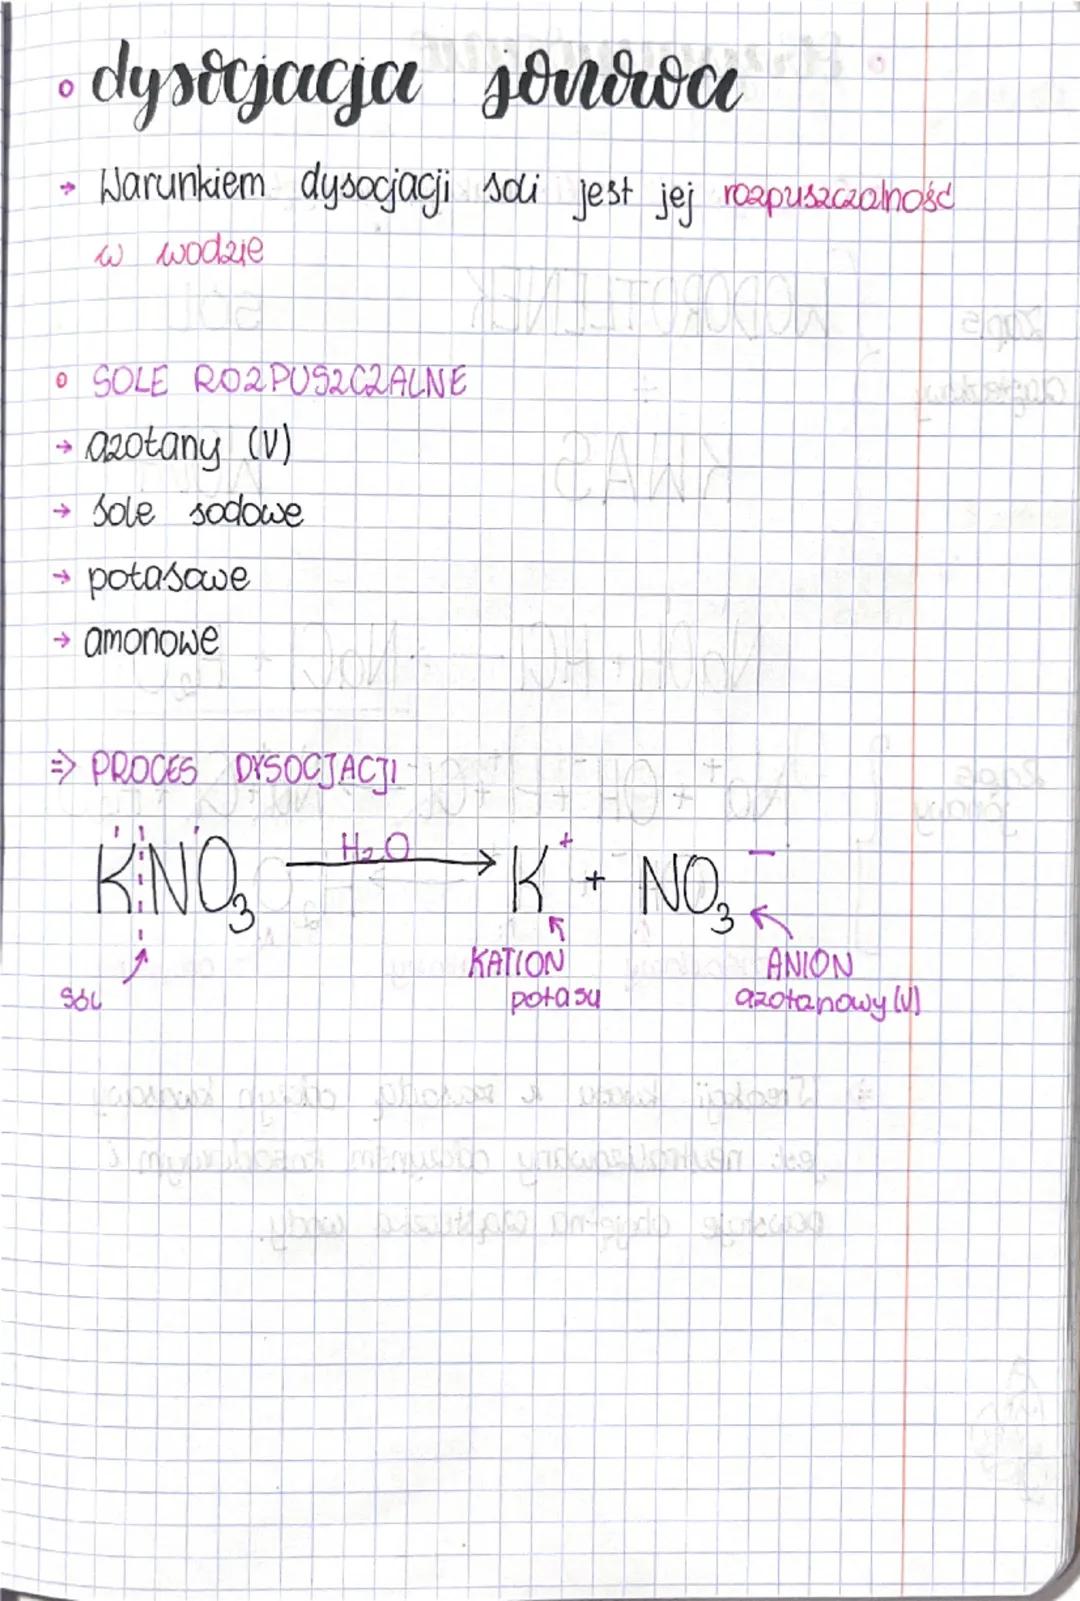 dysocjacja jonowa
→ Warunkiem dysocjacji soli jest jej rozpuszczalność
w wodzie
SOLE ROZPUSZCZALNE
→ azotany (V)
→ sole sodowe
→ potasowe
→ amonowe
⇒ PROCES DYSOCJACJI
KNO₃ H₂O → K⁺ + NO₃⁻
KATION ANION
sól potasu azotanowy (V)